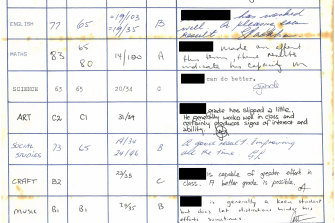 ENGLISH 77 65 -19/103 -19/35 B has worked
well. A pleasing
result.
MATHS 83 65 80 14/100 A made an effort
this term, these results
indicate his capacity
SCIENCE 63 63 20/34 C can do better.
ART C2 C1 31/34 grade has slipped a little.
He generally works well in class and
certainly produces signs of interest and
ability.
SOCIAL STUDIES 73 65 19/34 24/66 B A good result improving
all the time.
CRAFT B2 C is capable of greater effort in
class. A better grade is possible.
MUSIC B1 B1 B is generally a keen student
but does let distractions hinder his
efforts sometimes.